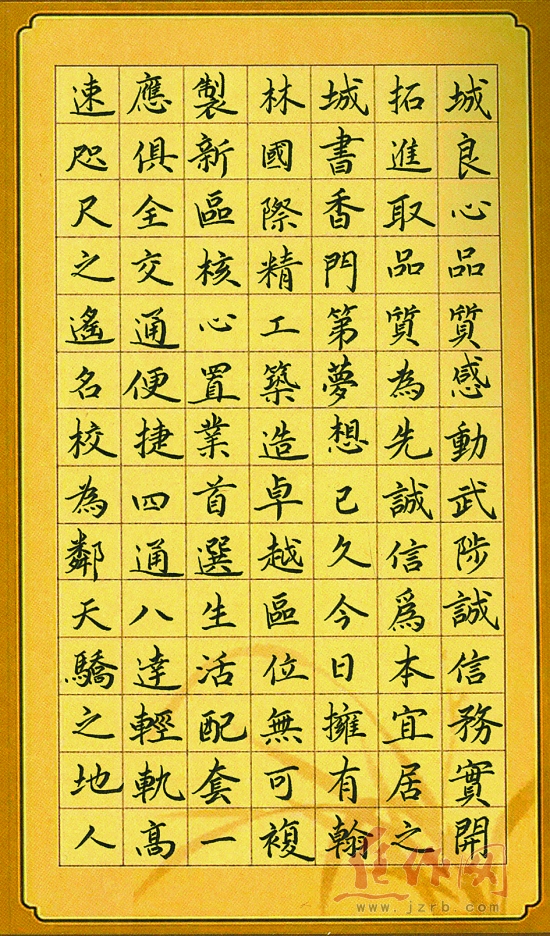 城良心品質感動武陟誠信務實開
拓進取品質為先誠信爲本宜居之
城書香門第夢想已久今日擁有翰
林國際精工築造卓越區位無可複
製新區核心置業首選生活配套一
應俱全交通便捷四通八達輕軌高
速咫尺之遙名校為鄰天驕之地人
焦作网
www.jzrb.com